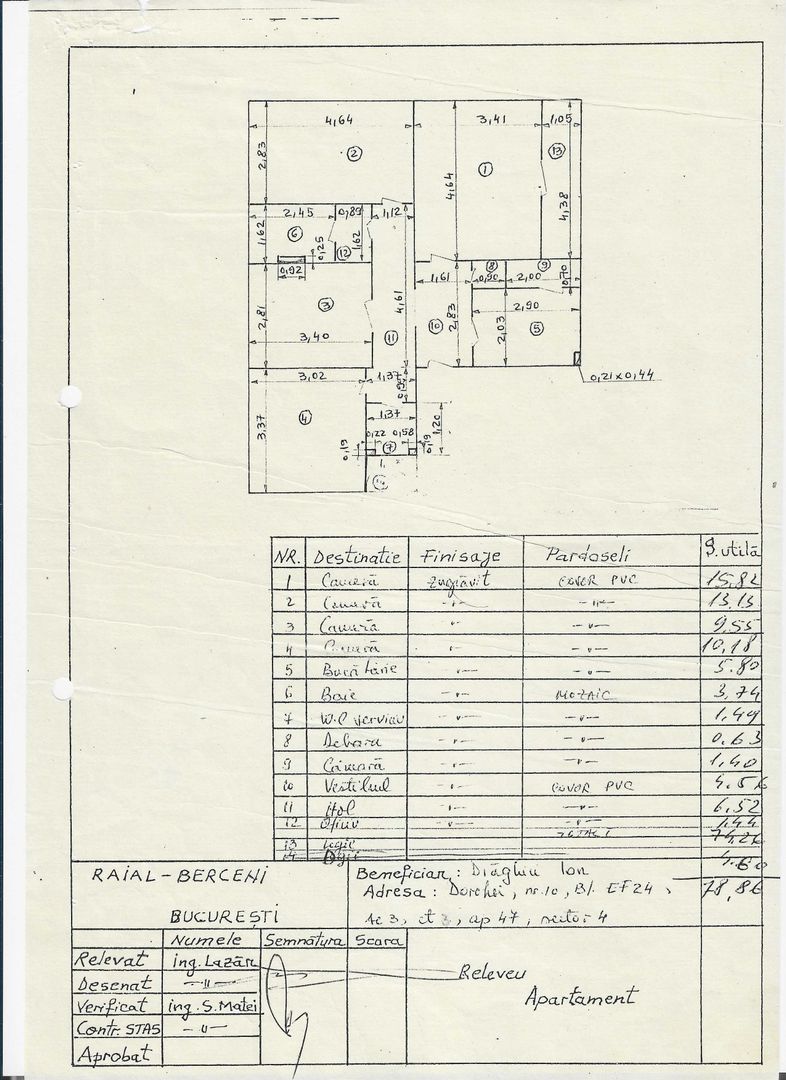 4,64
3,41
1,05
2,83
2
1
13
4,64
4,38
2,45
0,89
1,12
1,62
6
0,25
12
1,62
0,92
8
9
1,61
0,90
2,00
0,70
2,81
3
4,61
10
2,83
2,90
2,03
5
3,40
11
3,02
1,37
0,21x0,44
3,37
4
1,37
1,20
0,22
0,58
0,19
7
0,19
NR. Destinatie Finisaje Pardoseli S.utilă
1 Cameră Zugrăvit COVOR PVC 15,82
2 Cameră -"- -"- 13,13
3 Cameră -"- -"- 9,55
4 Cameră -"- -"- 10,18
5 Bucătărie -"- -"- 5.80
6 Baie -"- MOZAIC 3,74
7 W.C serviciu -"- -"- 1,49
8 Debara -"- -"- 0.63
9 Cămară -"- -"- 1,40
10 Vestibul -"- COVOR PVC 4.56
11 Hol -"- -"- 6,52
12 Oficiu -"- -"- 1,44
13 Logie 74,26
14 4.60
78,86
RAIAL-BERCENI
BUCUREȘTI
Beneficiar: Drăghiu Ion
Adresa: nr.10, Bl. EF24,
sc 3, et 3, ap 47, sector 4
Numele Semnătura Scara
Relevat ing. Lazăr
Desenat -"-
Verificat ing. S. Matei
Contr. STAS -"-
Aprobat
Releveu
Apartament